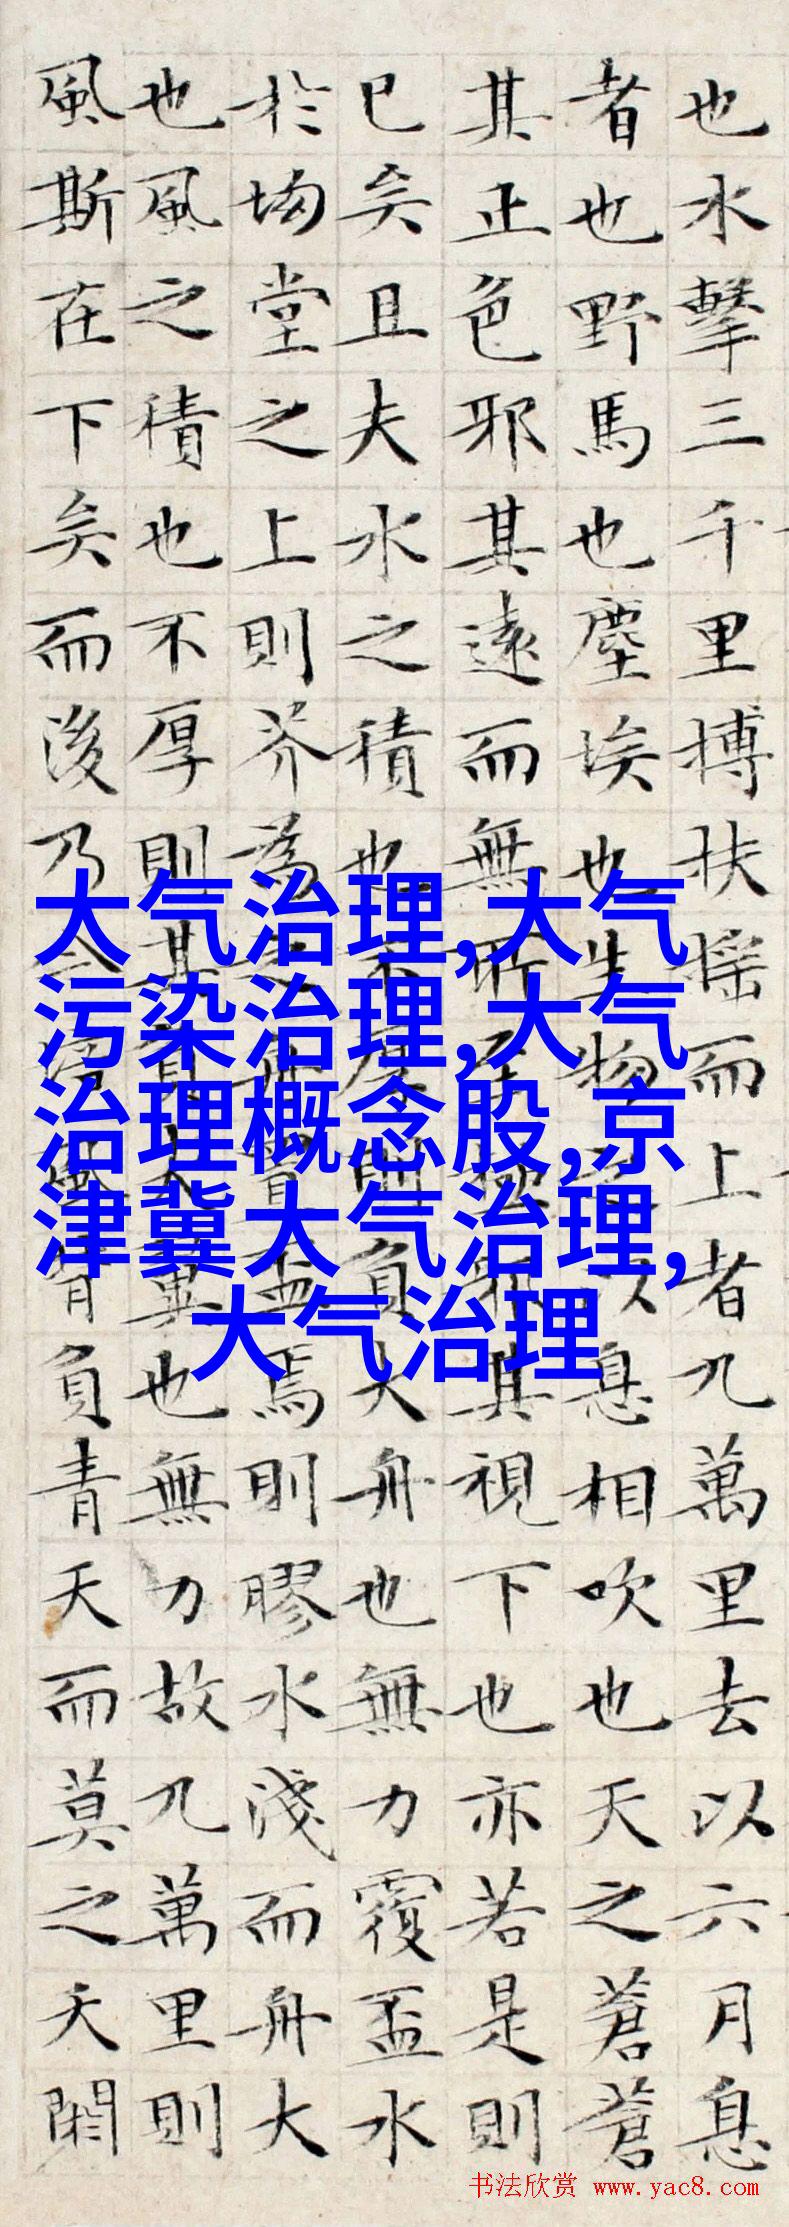 也水擊三千里搏扶摇而上者九萬里去以六月息
者也野馬也塵埃也生物之以息相吹也天之蒼蒼
其正色邪其遠而無所至極邪其視下也亦若是則
已矣且夫水之積也不厚則負大舟也無力覆盃水
於坳堂之上則芥為之舟置盃焉則膠水淺而舟大
也風之積也不厚則其負大翼也無力故九萬里則
風斯在下矣而後乃今培風背負青天而莫之夭閼
大气治理,大气
污染治理,大气
治理概念股,京
津冀大气治理,
大气治理
书法欣赏 www.yac8.com